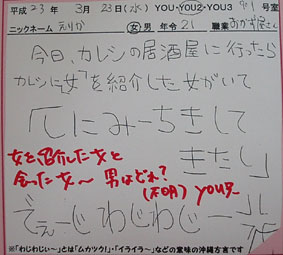 平成23年 3月23日(水) YOU-YOU2-YOU3 901号室
ニックネーム えりか 女 男 年令21 職業 おかず屋さん
今日、カレシの居酒屋に行ったら
カレシに女を紹介した女がいて
「しにみーちきして
きたし」
女を紹介した女と
会った女〜 男はどれ?
(天の声) YOU兄
でぇーじ わじわじー
※「わじわじぃ〜」とは「ムカツウ!」・「イライラ〜」などの意味の沖縄方言です